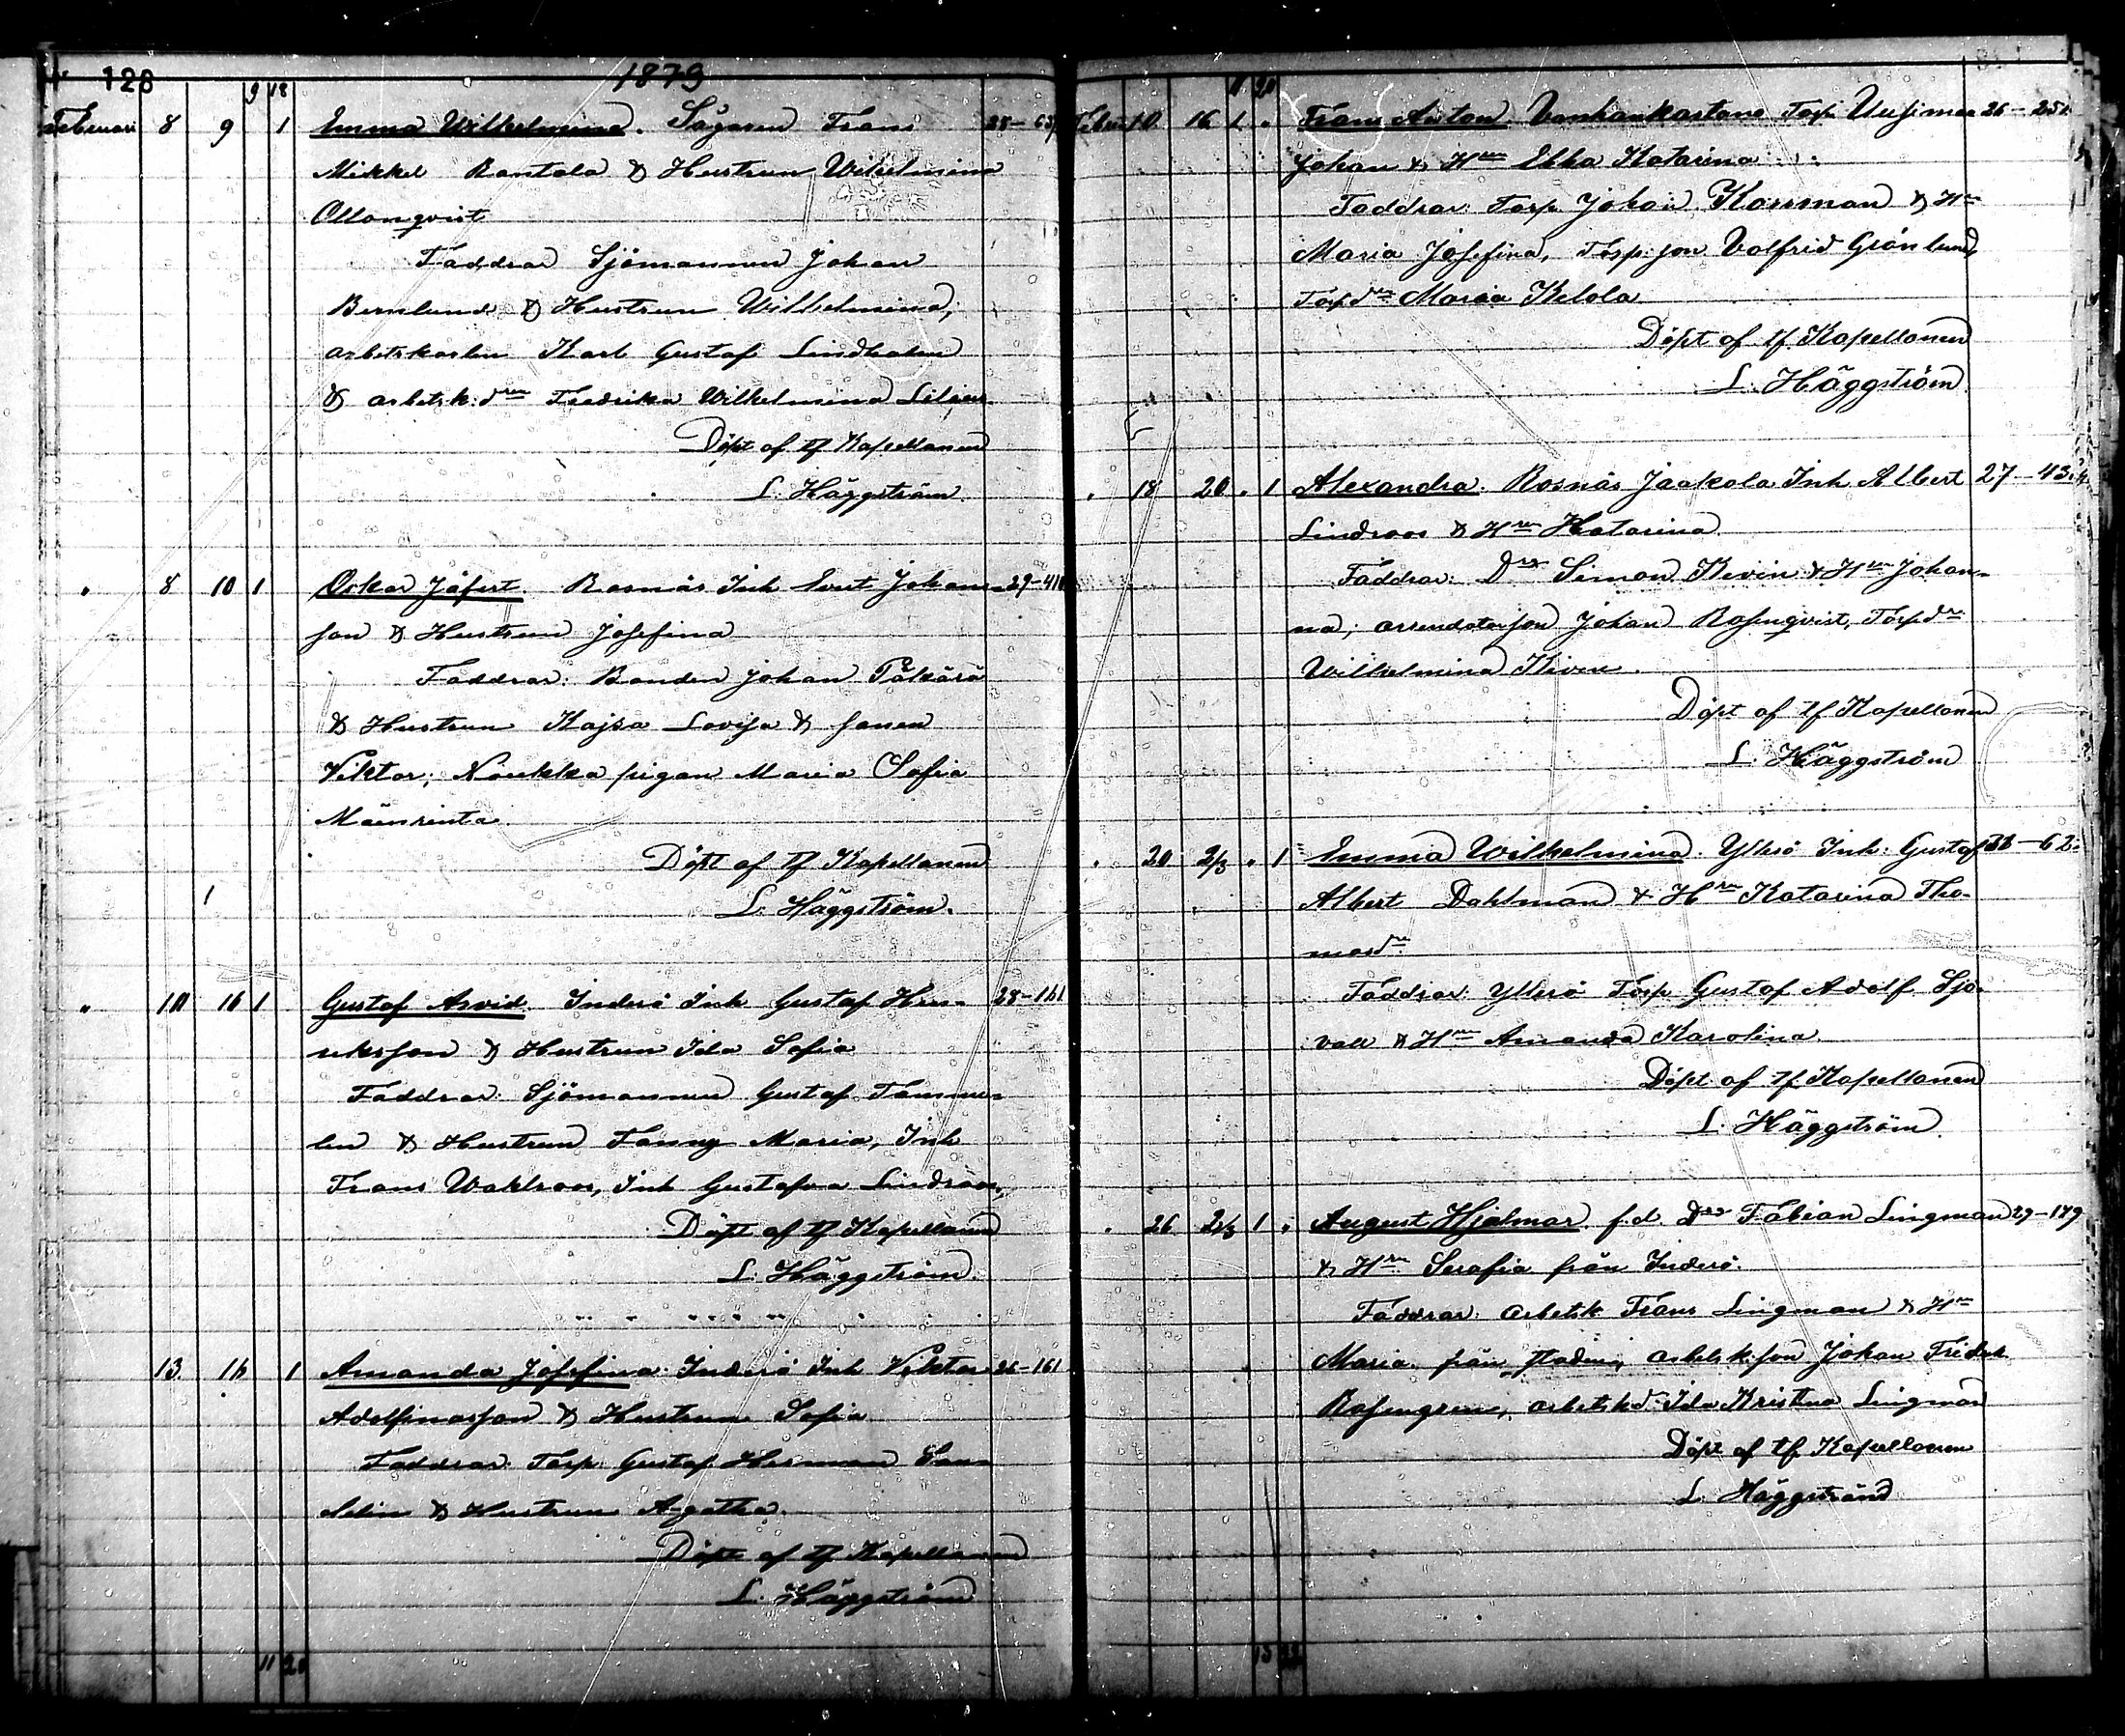 128
1879
9 18
Februari 8 9 1 Emma Wilhelmina. Sågaren Frans 28-63
Mikkel Rantala & Hustrun Wilhelmina
Allonqvist
Faddrar Sjömannen Johan
Bernlund & Hustrun Wilhelmina,
arbetskarlen Karl Gustaf Lindholm
& arbetsk:drn Fredrika Wilhelmina
Döpt af tf Kapellanen
L. Häggström
" 8 10 1 Oskar Jafert. Rosnäs Inh Evert Johans- 29-410
son & Hustrun Josefina
Faddrar: Bonden Johan Päkärä
& Hustrun Kajsa Lovisa & sonen
Viktor; Noukka pigan Maria Sofia
Mäenrinta.
Döpt af tf Kapellanen
L. Häggström.
" 10 16 1 Gustaf Arvid. Inderö Inh Gustaf Hen- 28-161
riksson & Hustrun Ida Sofia
Faddrar: Sjömannen Gustaf Tamme-
lin & Hustrun Fanny Maria, Inh
Frans Wahlroos, Inh Gustafva Lindroos,
Döpt af tf Kapellanen
L. Häggström.
13. 16 1 Amanda Josefina Inderö Inh Viktor 26-161
Adolfinasson & Hustrun Sofia
Faddrar: Torp: Gustaf Herman
& Hustrun Agatha.
Döpt af tf Kapellanen
L. Häggström
11 20
11 20
Febru 10. 16 1 " Frans Anton Vanhankartano Torp. Uusimaa 26-251
Johan & Hrn Ebba Katarina
Faddrar: Torp. Johan Korsman & Hrn
Maria Josefina, Torp:son Volfrid Grönlund,
Torpdrn Maria Kelola
Döpt af tf. Kapellanen
L. Häggström.
" 18 20 " 1 Alexandra. Rosnäs Jaakola Inh Albert 27-43
Lindroos & Hrn Katarina.
Faddrar: Drn Simon Kevin & Hrn Johan-
na; arrendatorson Johan Rosenqvist, Torpdr
Wilhelmina Kiven.
Döpt af tf Kapellanen
L. Häggström
" 20 2/3 " 1 Emma Wilhelmina. Ylisö Inh: Gustaf -62
Albert Dahlman & Hrn Katarina Tho-
masdr.
Faddrar: Ylisö Torp Gustaf Adolf Sjö-
vall & Hrn Amanda Karolina.
Döpt af tf Kapellanen
L. Häggström.
" 26 2/3 1 " August Hjalmar. f.d. Drn Fabian Lingman 29-179
& Hrn Serafia från Inderö.
Faddrar: arbetsk Frans Lingman & Hrn
Maria från staden, arbetsk:son Johan Fridrik
Rosengren, arbetskd: Ida Kristina Lingman
Döpt af tf Kapellanen
L. Häggström
13